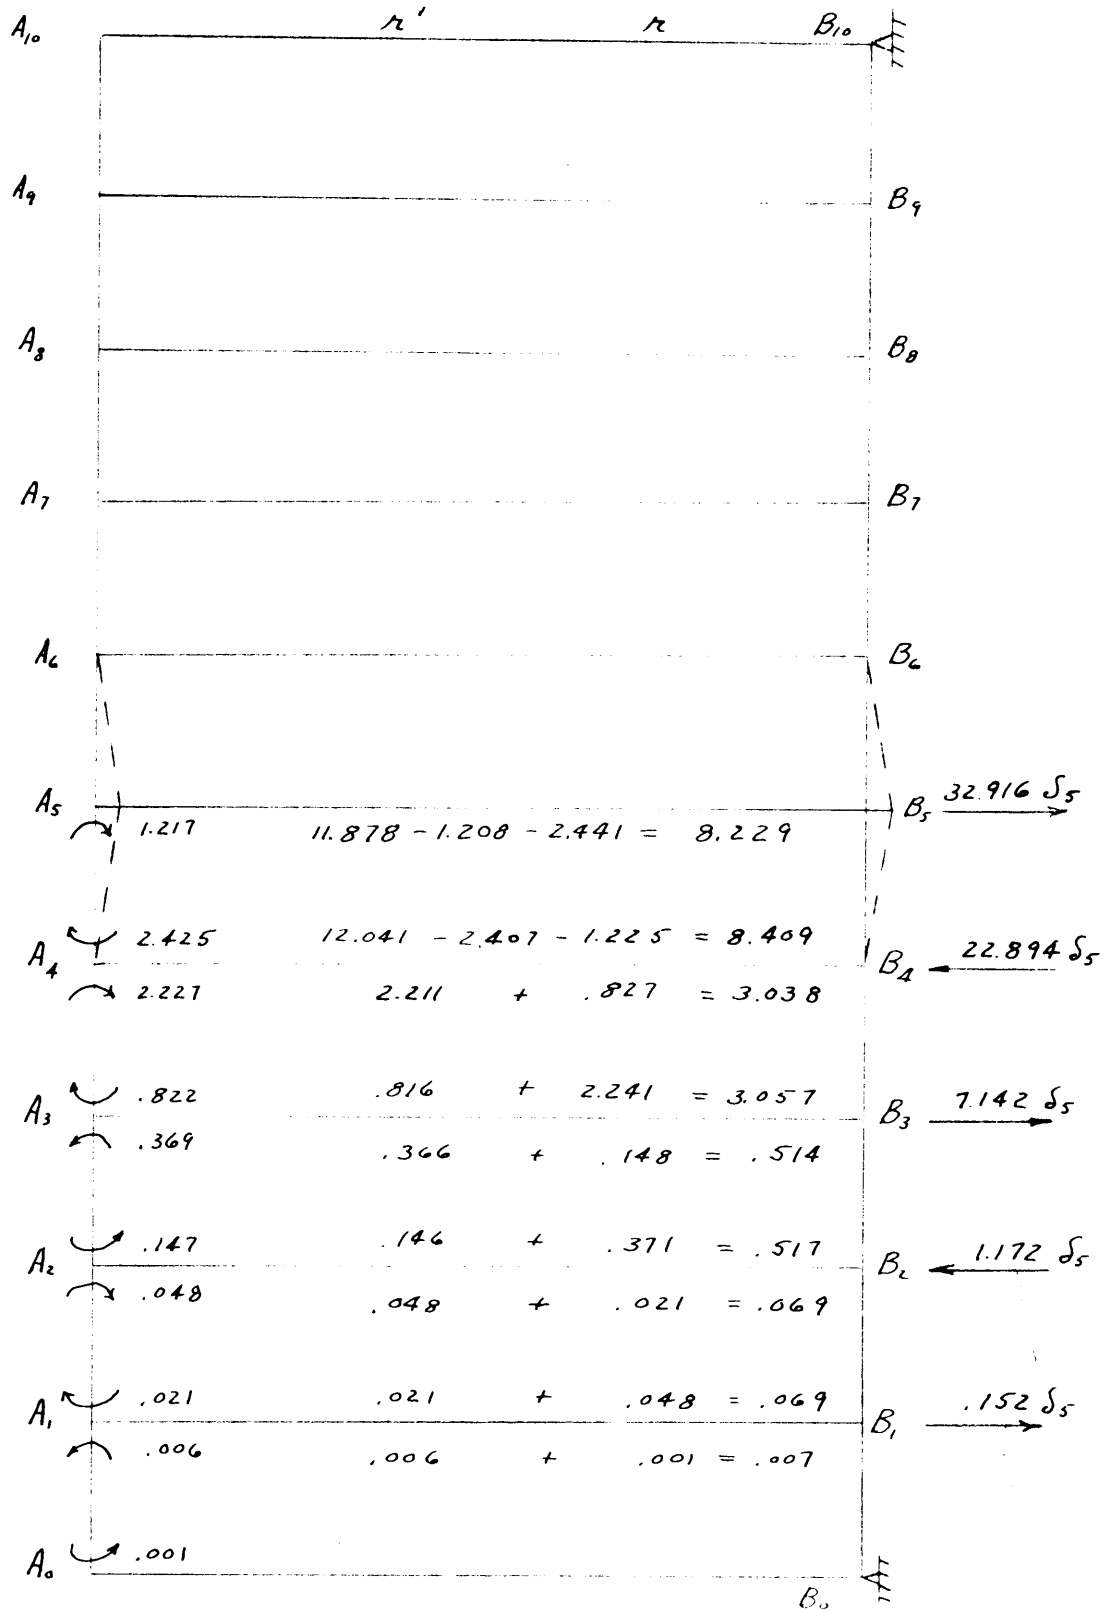 A₁₀ r' r B₁₀
A₉ B₉
A₈ B₈
A₇ B₇
A₆ B₆
A₅ B₅ 32.916 δ₅
1.217 11.878 - 1.208 - 2.441 = 8.229
2.425 12.041 - 2.407 - 1.225 = 8.409
A₄ B₄ 22.894 δ₅
2.227 2.211 + .827 = 3.038
.822 .816 + 2.241 = 3.057
A₃ B₃ 7.142 δ₅
.369 .366 + .148 = .514
.147 .146 + .371 = .517
A₂ B₂ 1.172 δ₅
.048 .048 + .021 = .069
.021 .021 + .048 = .069
A₁ B₁ .152 δ₅
.006 .006 + .001 = .007
A₀ .001
B₀